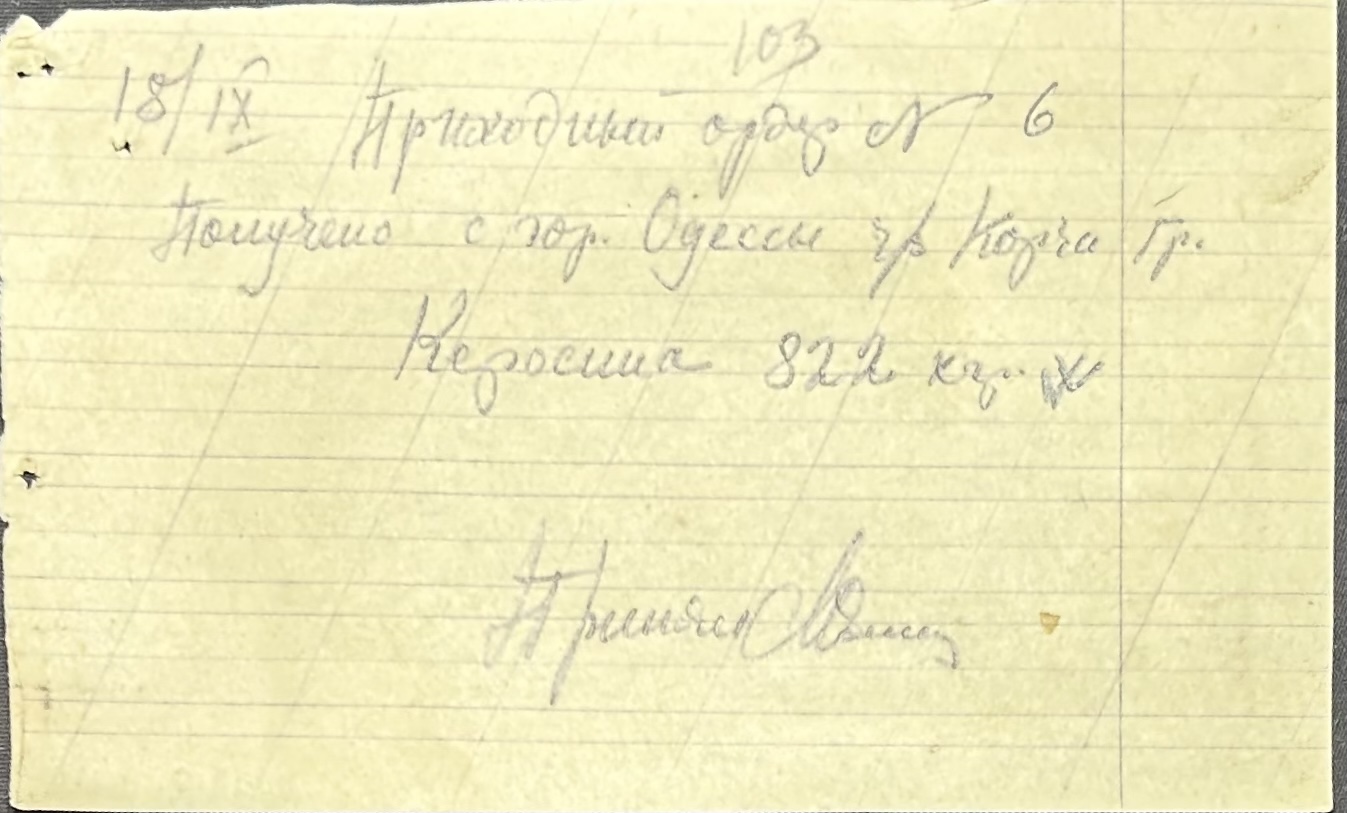 103
18/IX Приходный ордер № 6
Получено с гор. Одессы ч/з Корча Гр.
Керосина 822 кг.
Принял